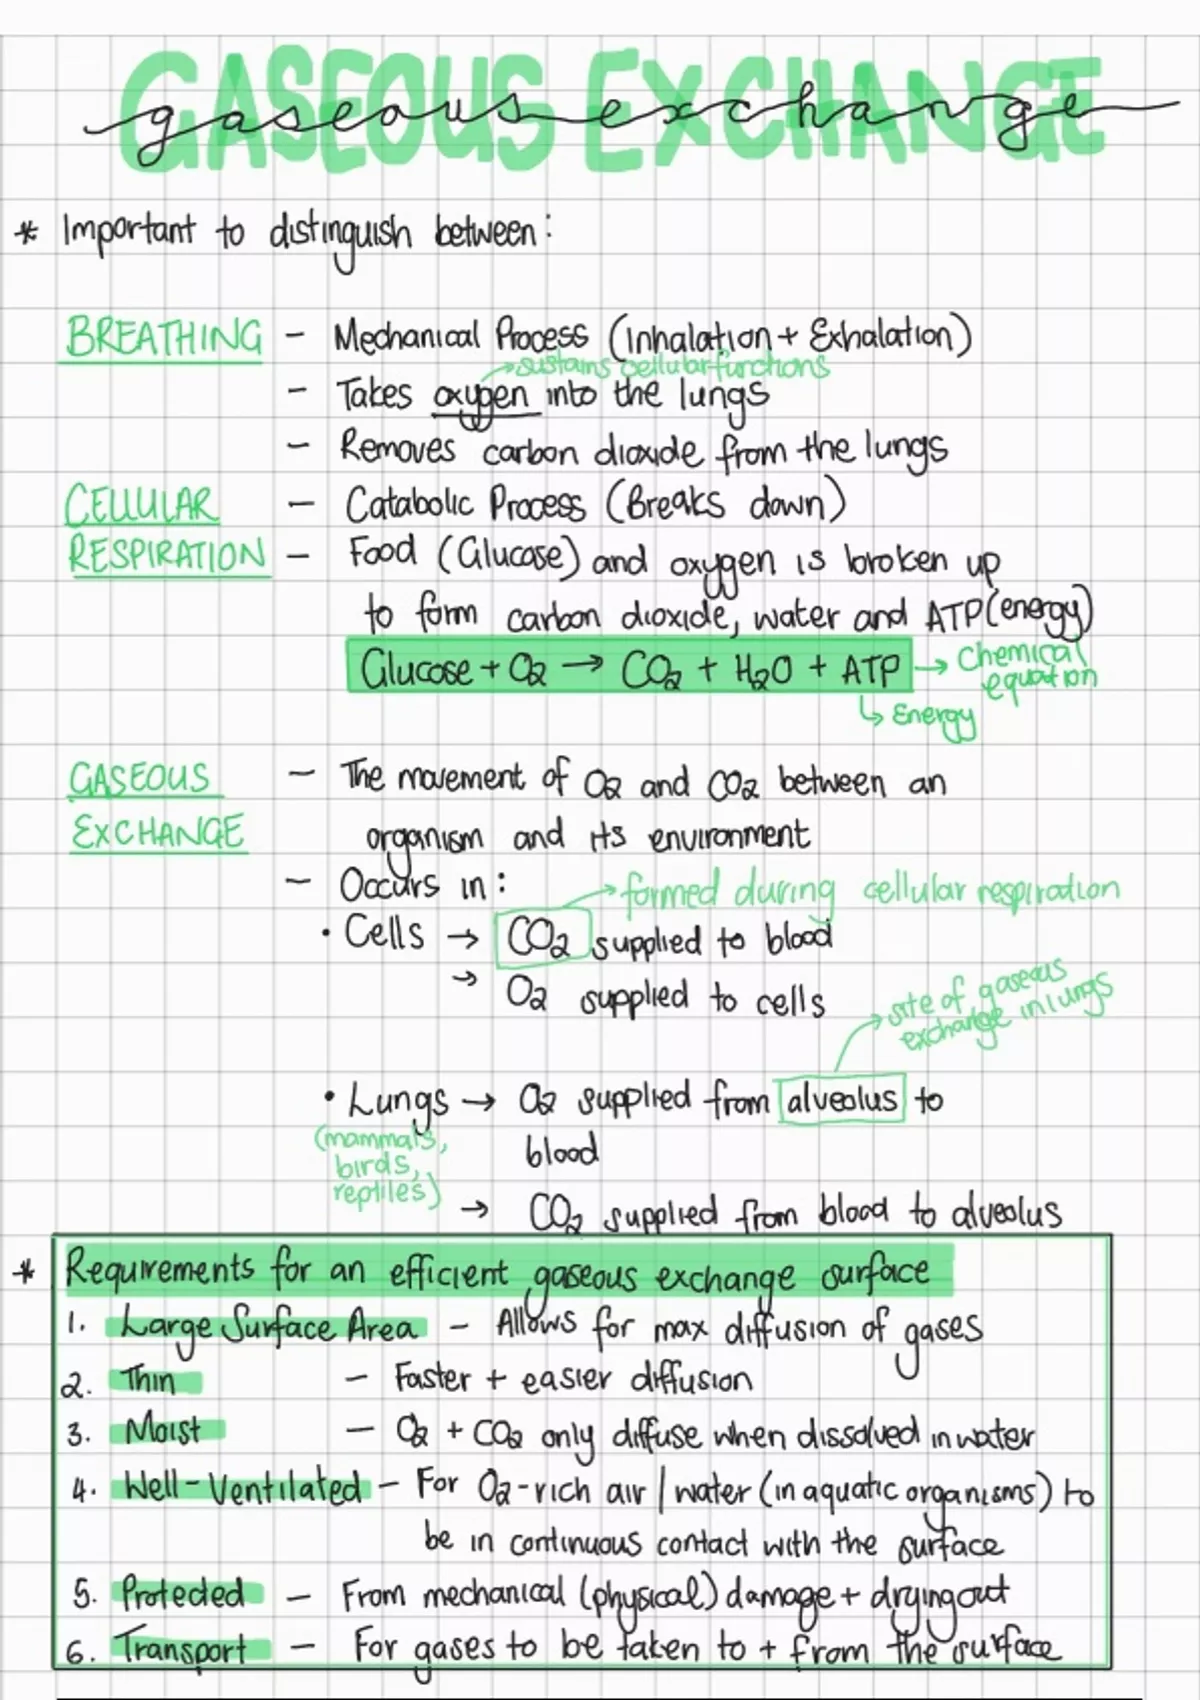 GASEOUS EXCHANGE
gaseous exchange
* Important to distinguish between:
BREATHING - Mechanical Process (Inhalation + Exhalation)
→ sustains cellular functions
- Takes oxygen into the lungs
- Removes carbon dioxide from the lungs
CELLULAR - Catabolic Process (Breaks down)
RESPIRATION - Food (Glucose) and oxygen is broken up
to form carbon dioxide, water and ATP (energy)
Glucose + O2 → CO2 + H2O + ATP → Chemical
equation
↳ Energy
GASEOUS - The movement of O2 and CO2 between an
EXCHANGE organism and its environment
- Occurs in:
→ formed during cellular respiration
• Cells → CO2 supplied to blood
→ O2 supplied to cells
→ site of gaseous
exchange in lungs
• Lungs → O2 supplied from alveolus to
(mammals,
blood
birds,
reptiles)
→ CO2 supplied from blood to alveolus
* Requirements for an efficient gaseous exchange surface
1. Large Surface Area - Allows for max diffusion of gases
2. Thin - Faster + easier diffusion
3. Moist - O2 + CO2 only diffuse when dissolved in water
4. Well-Ventilated - For O2-rich air / water (in aquatic organisms) to
be in continuous contact with the surface
5. Protected - From mechanical (physical) damage + drying out
6. Transport - For gases to be taken to + from the surface